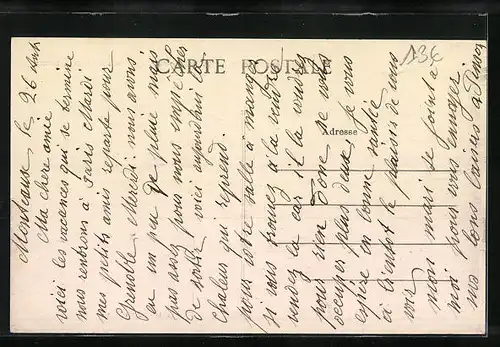 CARTE POSTALE
Adresse
134
Monteaux le 26 Août
Ma chere amie
voici les vacances qui se termine
nous rentrons à Paris Mardi
mes petits amis reparte pour
Grenoble Mercredi nous avons
eu un peu de pluie mais
pas assez pour nous empêcher
de sortir voici aujourd'hui une
chaleur qui reprend.
pour votre salle à manger
si vous trouvez à la vendre
vendez la car s'il la
pour rien Donc ne vous
occuper plus deux, je vous
espère en bonne santée
à bientot le plaisir de vous
voir mon mari se joint a
moi pour vous envoyer
nos bons baisers a